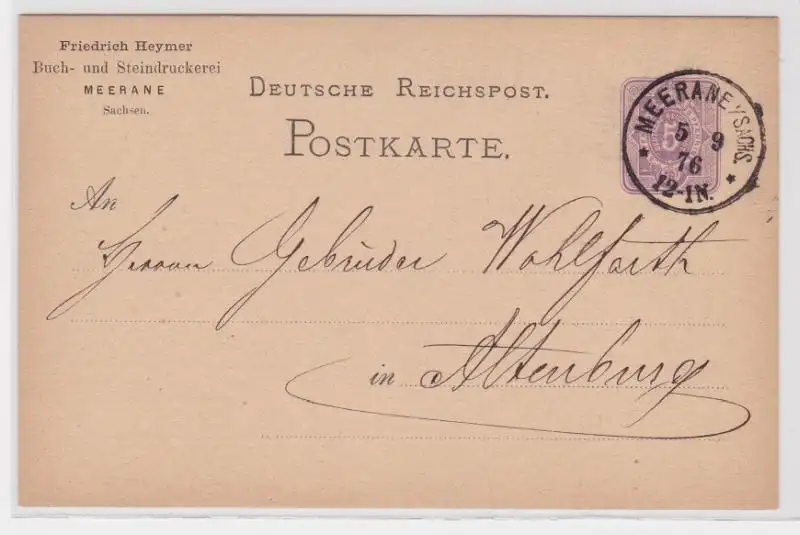 Friedrich Heymer
Buch- und Steindruckerei
MEERANE
Sachsen.
DEUTSCHE REICHSPOST.
POSTKARTE.
MEERANE I/SACHS.
5 9
76
12-1N.
5
An
Herren Gebrüder Wohlfarth
in Altenburg